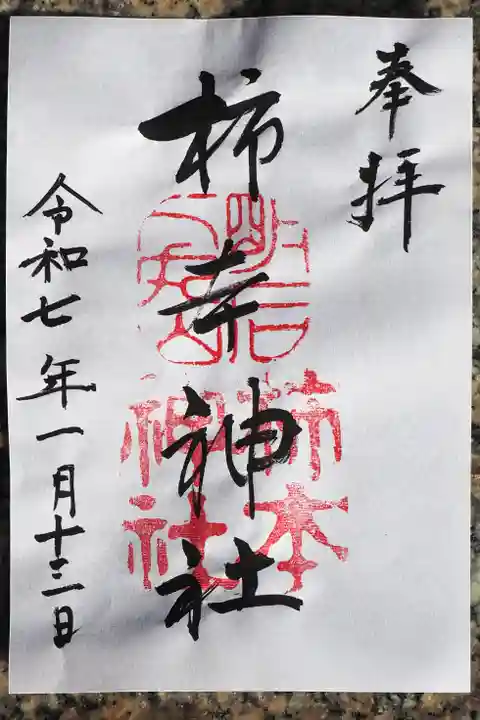 奉拝
柿本神社
令和七年一月十三日
柿本
神社